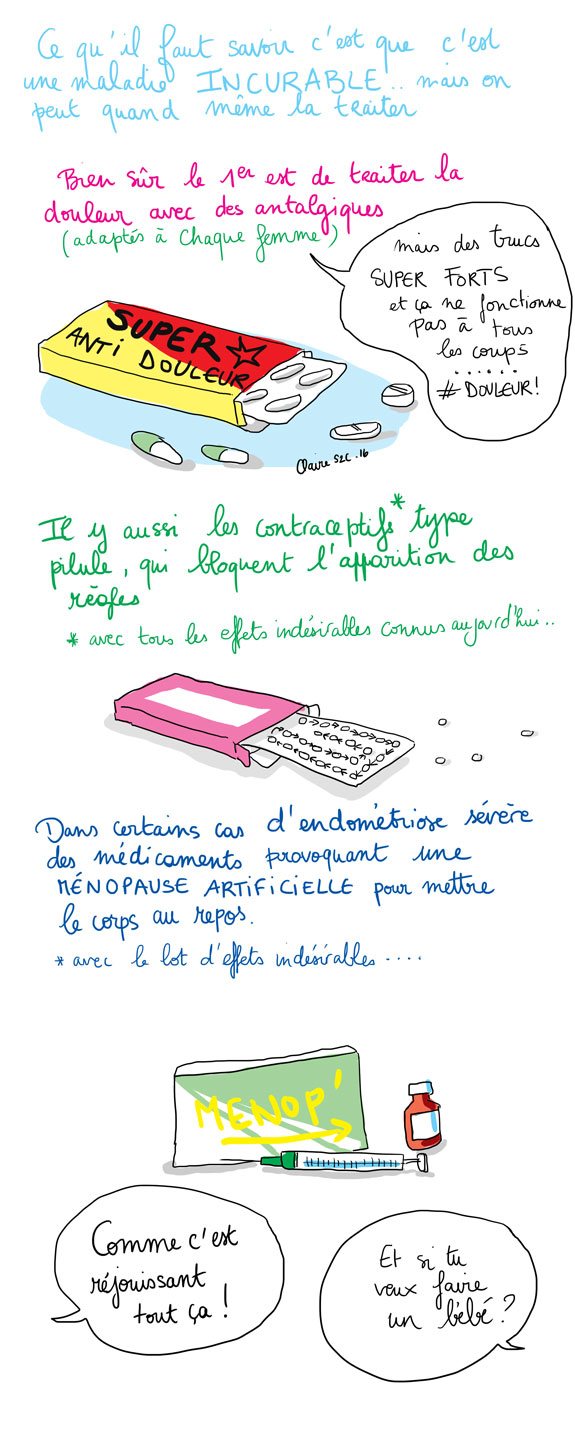 Ce qu'il faut savoir c'est que c'est
une maladie INCURABLE.. mais on
peut quand même la traiter
Bien sûr le 1er est de traiter la
douleur avec des antalgiques
(adaptés à chaque femme)
mais des trucs
SUPER FORTS
et ça ne fonctionne
pas à tous
les coups
......
# DOULEUR!
SUPER
ANTI DOULEUR
Claire SZC.16
Il y aussi les contraceptifs* type
pilule, qui bloquent l'apparition des
règles
* avec tous les effets indésirables connus aujourd'hui..
Dans certains cas d'endométriose sévère
des médicaments provoquant une
MÉNOPAUSE ARTIFICIELLE pour mettre
le corps au repos.
* avec le lot d'effets indésirables ....
MENOP'
Comme c'est
réjouissant
tout ça !
Et si tu
veux faire
un bébé ?